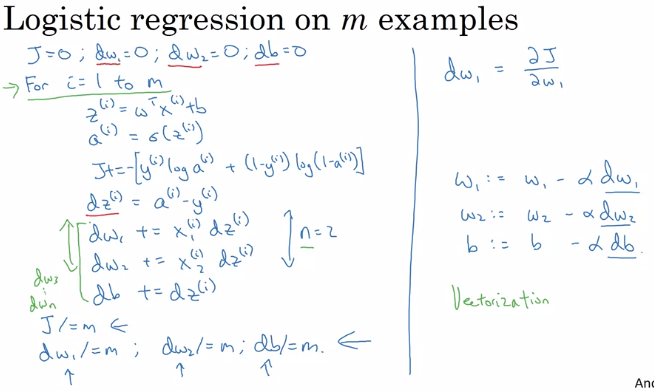 Logistic regression on m examples
J=0 ; dw₁=0 ; dw₂=0 ; db=0
→ For i=1 to m
z⁽ⁱ⁾ = wᵀx⁽ⁱ⁾+b
a⁽ⁱ⁾ = σ(z⁽ⁱ⁾)
J+=-[y⁽ⁱ⁾ log a⁽ⁱ⁾ + (1-y⁽ⁱ⁾) log(1-a⁽ⁱ⁾)]
dz⁽ⁱ⁾ = a⁽ⁱ⁾-y⁽ⁱ⁾
dw₁ += x₁⁽ⁱ⁾ dz⁽ⁱ⁾
dw₂ += x₂⁽ⁱ⁾ dz⁽ⁱ⁾
db += dz⁽ⁱ⁾
n=2
dw₃
⋮
dwₙ
J/=m ←
dw₁/=m ; dw₂/=m ; db/=m. ←
↑ ↑ ↑
dw₁ = ∂J/∂w₁
w₁ := w₁ - α dw₁
w₂ := w₂ - α dw₂
b := b - α db.
Vectorization
And